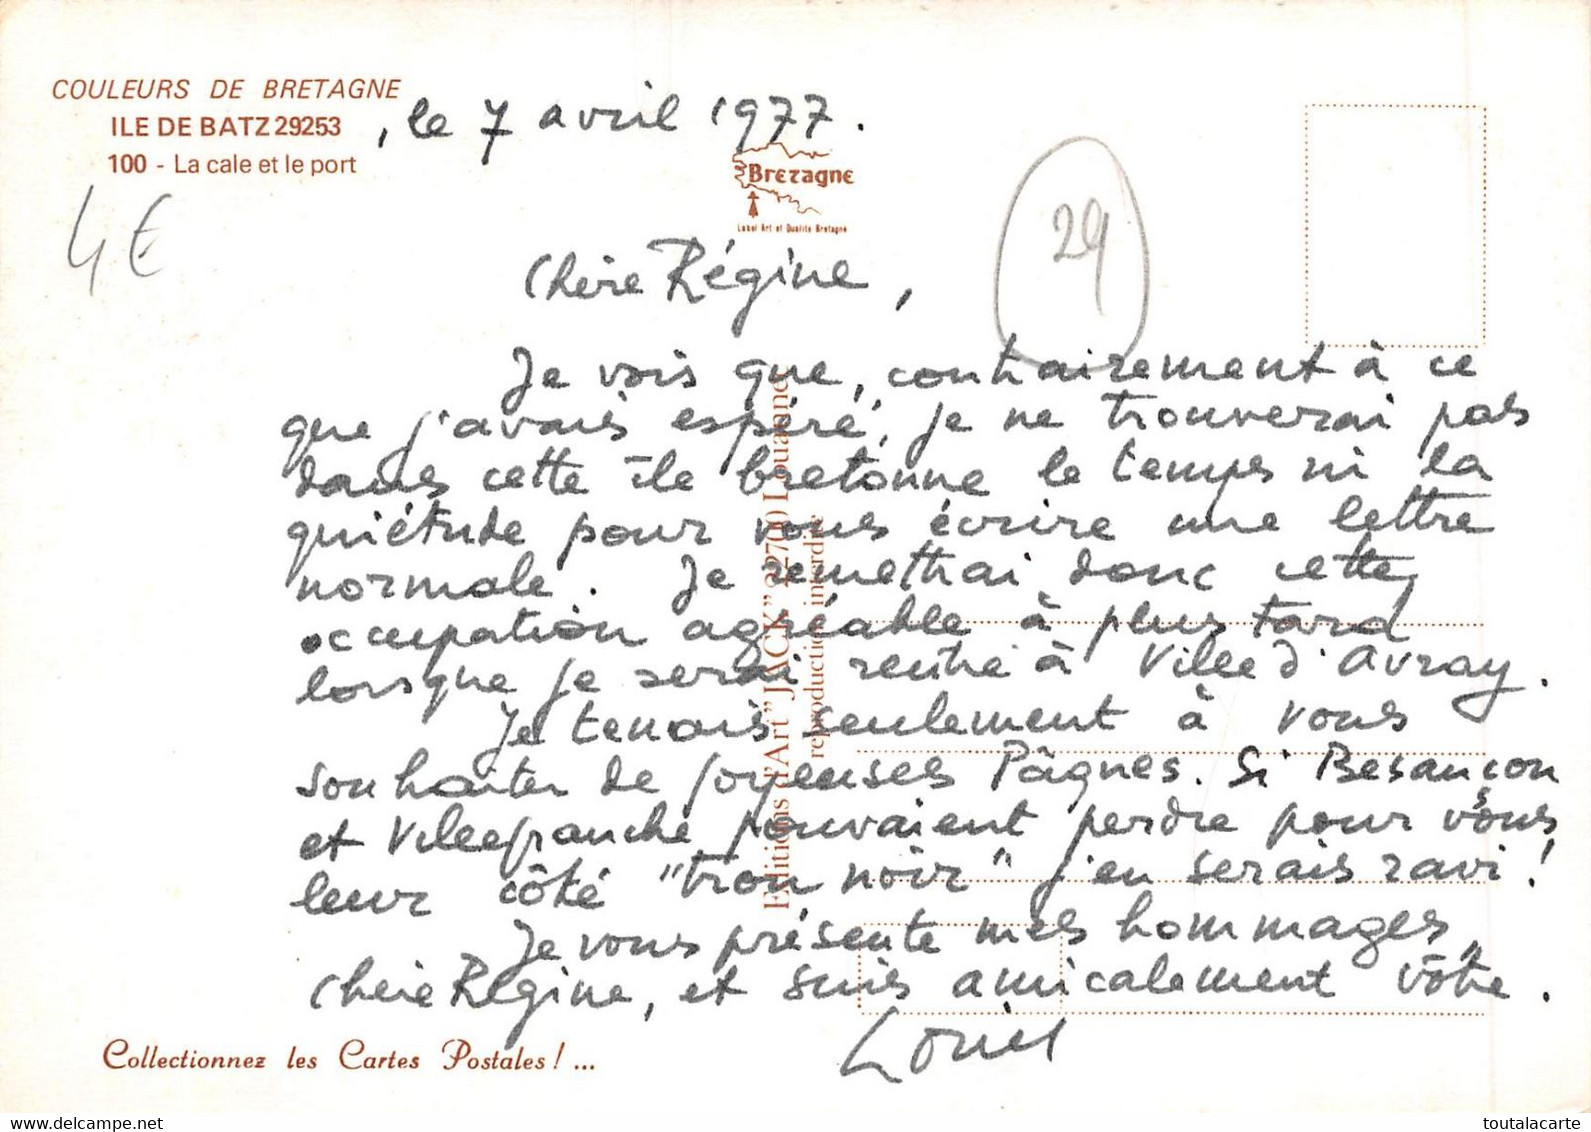 COULEURS DE BRETAGNE
ILE DE BATZ 29253
, le 7 avril 1977.
100 - La cale et le port
Bretagne
Label Art et Qualité Bretagne
4€
29
Chère Régine,
Je vois que, contrairement à ce
que j'avais espéré, je ne trouverai pas
dans cette île bretonne le temps ni la
quiétude pour vous écrire une lettre
normale. Je remettrai donc cette
occupation agréable à plus tard
lorsque je serai rentré à Ville d'Avray.
Je tenais seulement à vous
souhaiter de joyeuses Pâques. Si Besançon
et Villefranche pouvaient perdre pour vous
leur côté "trou noir" j'en serais ravi!
Je vous présente mes hommages,
Chère Régine, et suis amicalement vôtre.
Editions d'Art "JACK" 22700 Louannec
reproduction interdite
Collectionnez les Cartes Postales! ...
toutalacarte